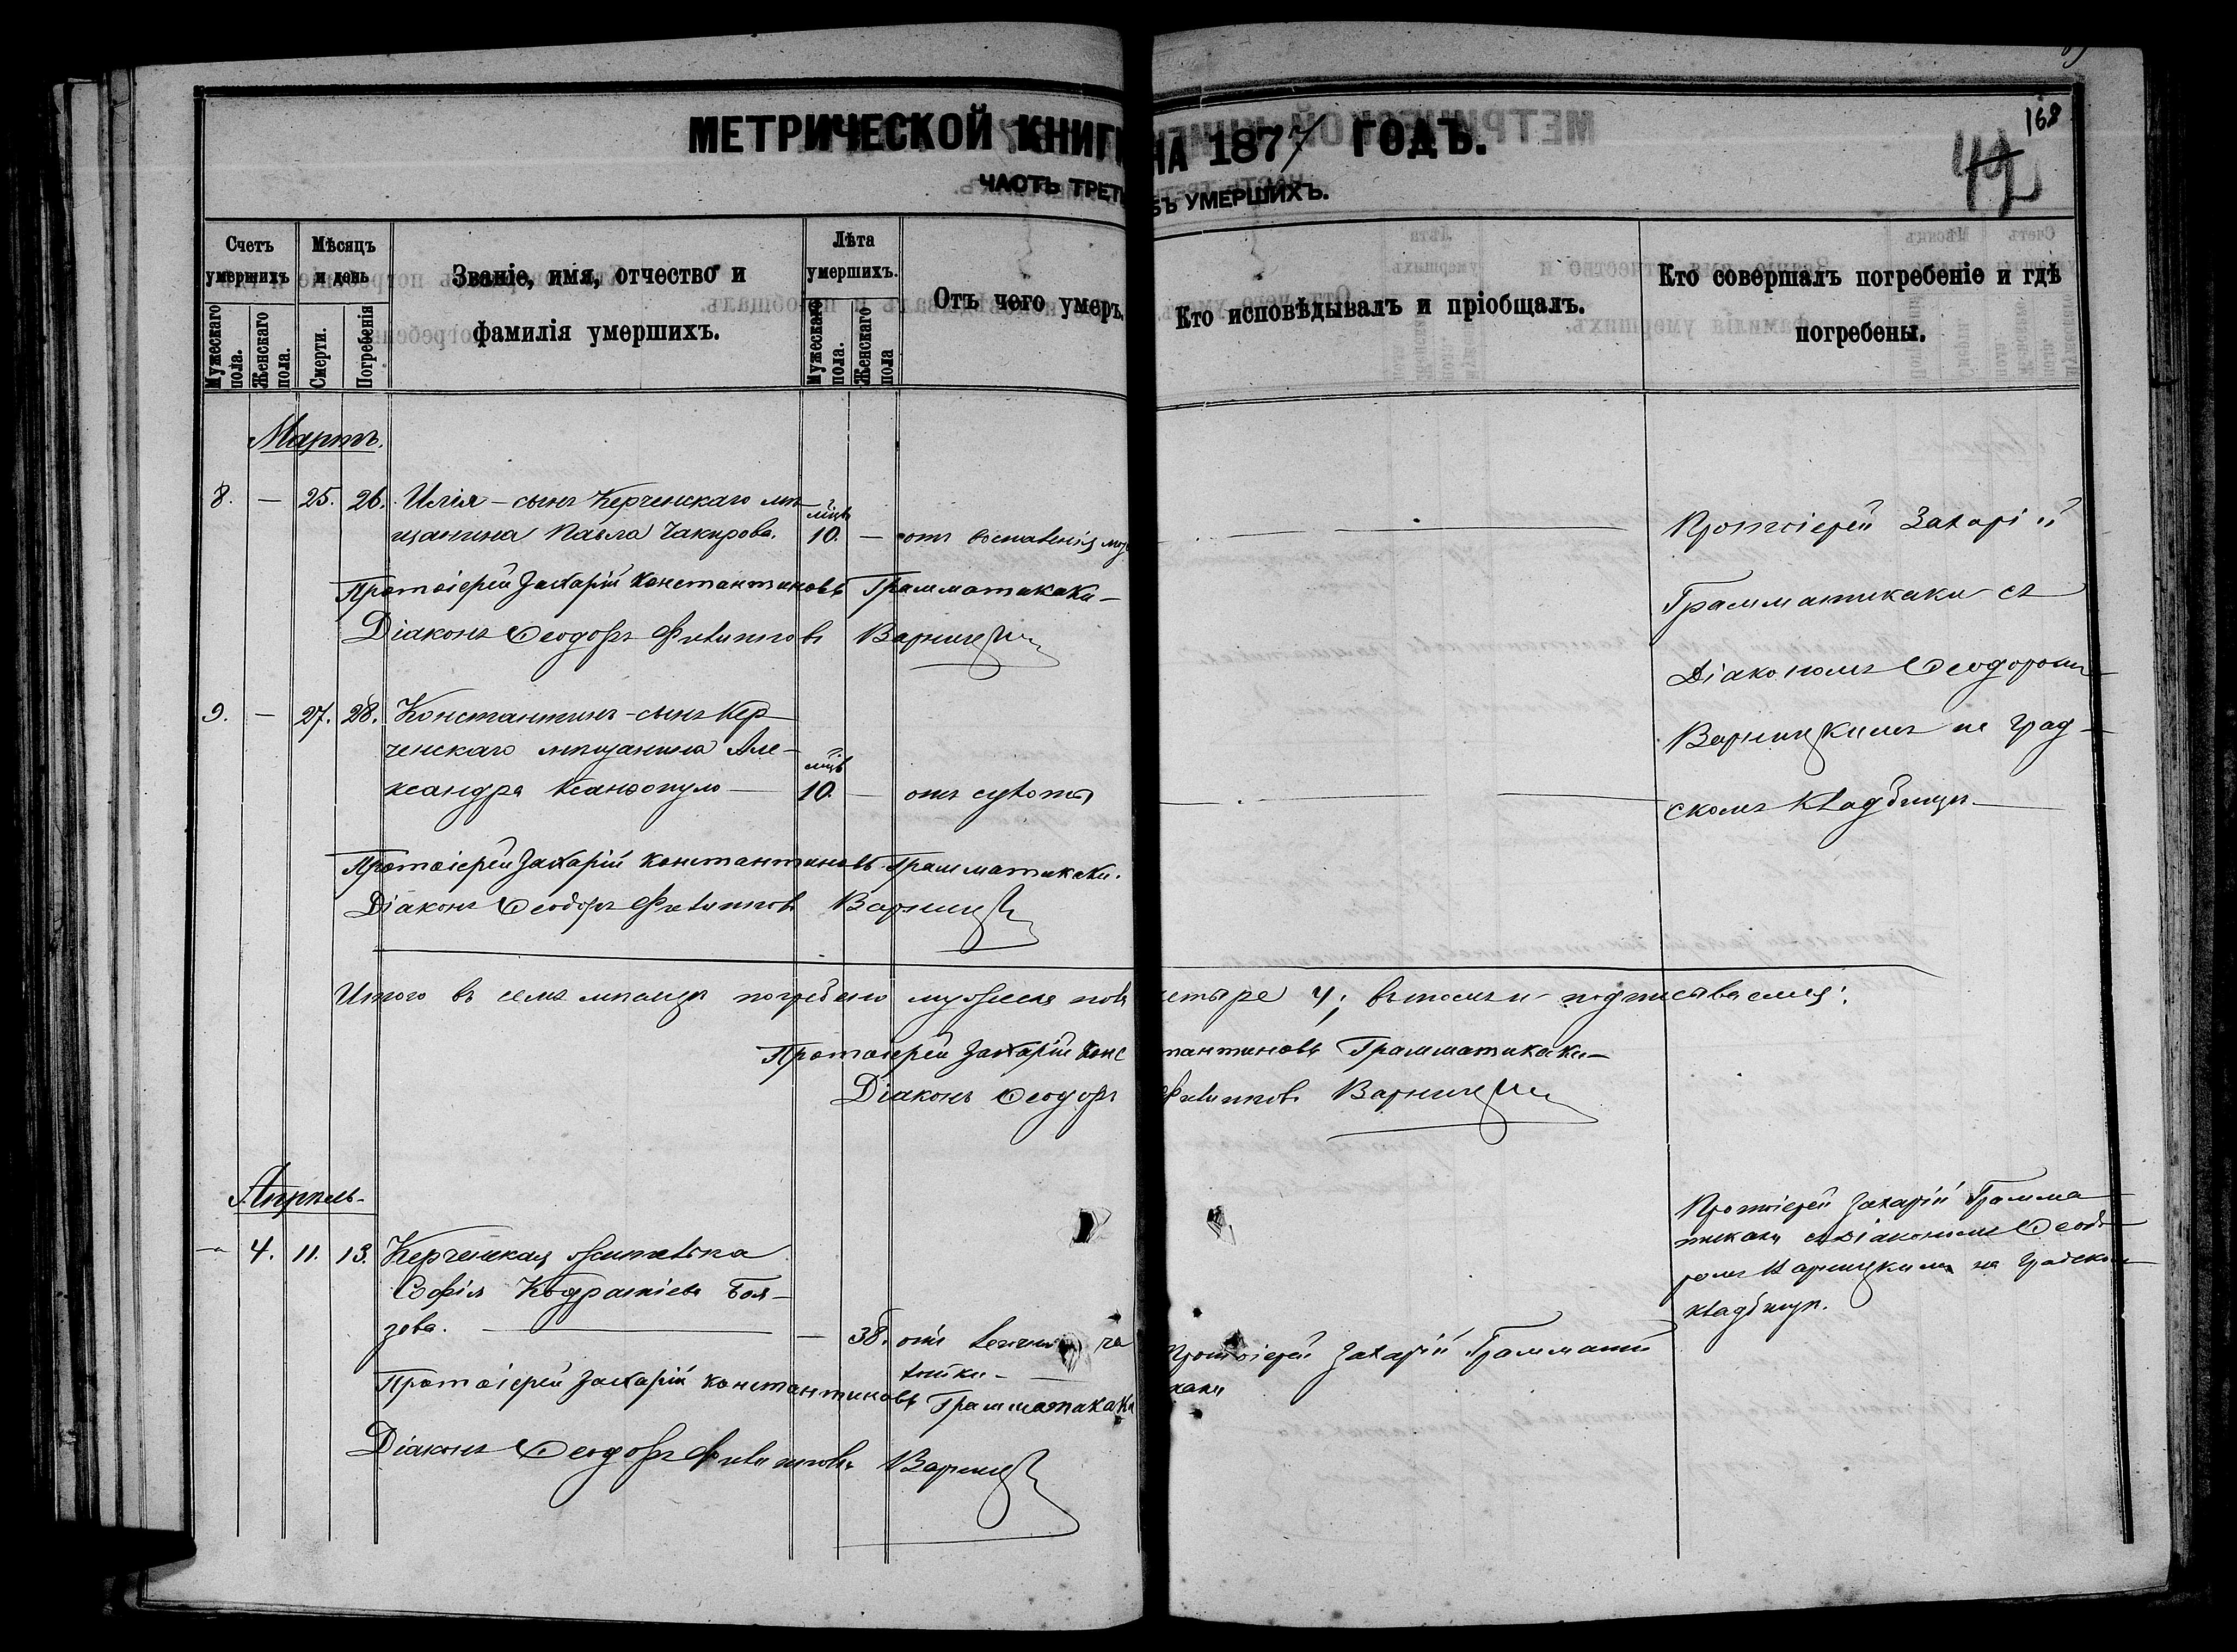 МЕТРИЧЕСКОЙ КНИГИ НА 1877 ГОДЪ.
ЧАСТЬ ТРЕТЬ БЪ УМЕРШИХЪ.
168
Счетъ умершихъ
Мужескаго пола.
Женскаго пола.
Мѣсяцъ и день
Смерти.
Погребенія
Званіе, имя, отчество и
фамилія умершихъ.
Лѣта умершихъ.
Мужескаго пола.
Женскаго пола
Отъ чего умеръ.
Кто исповѣдывалъ и пріобщалъ.
Кто совершалъ погребеніе и гдѣ
погребены.
Мартъ.
8. — 25. 26. Илія – сынъ Керченскаго мѣ-
щанина Павла Чакирова. мцъ 10. — отъ воспаленія
Протоіерей Захарій Константиновъ Грамматикаки
Діаконъ Ѳеодоръ Филипповъ Варницкій
Протоіерей Захарій
Грамматикаки съ
Діакономъ Ѳеодоромъ
Варницкимъ на град-
скомъ кладбищѣ
9. — 27. 28. Константинъ – сынъ Кер-
ченскаго мѣщанина Але-
ксандра Ксанѳопуло — мцъ 10. — отъ сухоты
Протоіерей Захарій Константиновъ Грамматикаки.
Діаконъ Ѳеодоръ Филипповъ Варницкій
Итого въ семъ мѣсяцѣ погребено мужеска пола четыре 4; въ томъ и подписываемся:
Протоіерей Захарій Константиновъ Грамматикаки
Діаконъ Ѳеодоръ Филипповъ Варницкій
Апрѣль
— 4. 11. 13. Керченская жителька
Софія Кодратіева Боя-
зева. — — 38. отъ легочной ча
хотки
Протоіерей Захарій Граммати
каки
Протоіерей Захарій Грамма
тикаки съ Діакономъ Ѳеодо
ромъ Варницкимъ на градском
кладбищѣ.
Протоіерей Захарій Константиновъ Грамматикаки
Діаконъ Ѳеодоръ Филипповъ Варницкій